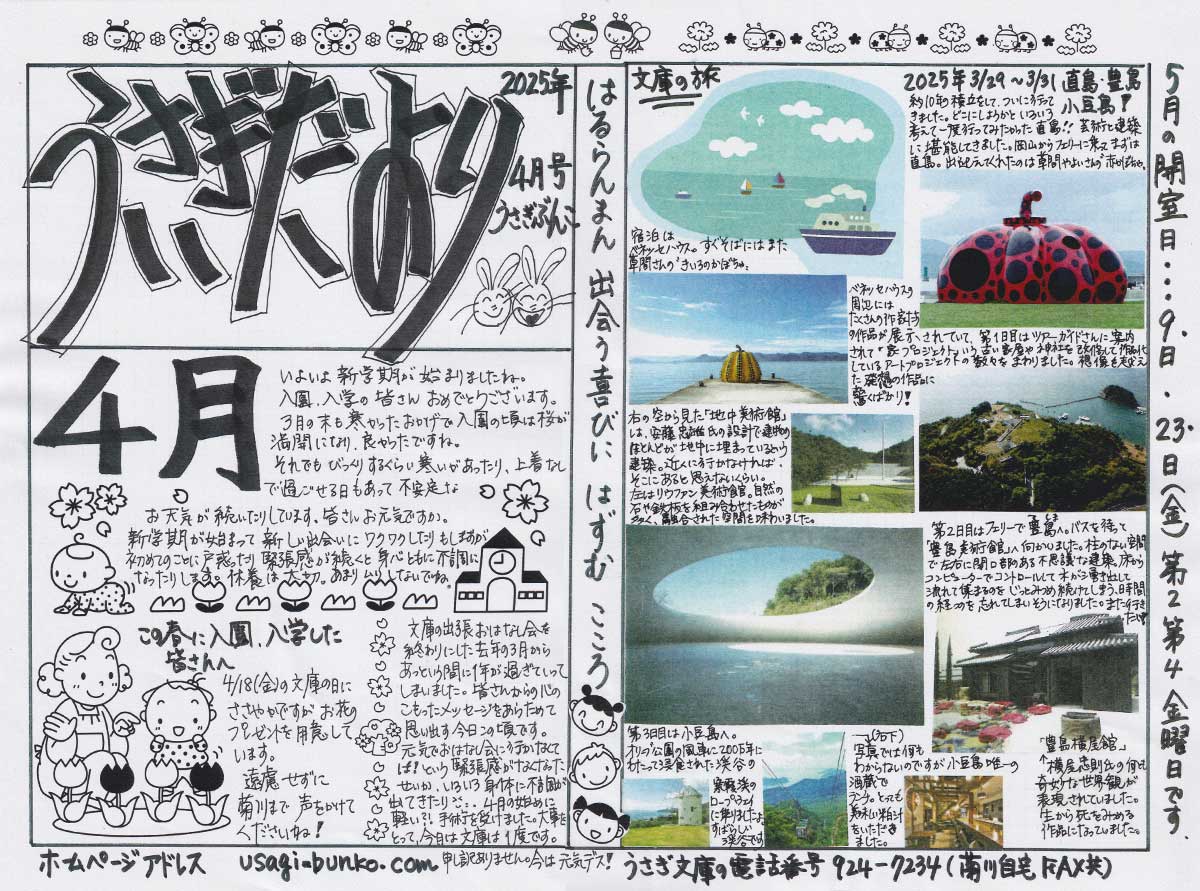 うさぎだより
2025年
4月号
うさぎぶんこ
4月
いよいよ新学期が始まりましたね。
入園、入学の皆さん おめでとうございます。
3月の末も寒かったおかげで入園の頃は桜が
満開になり、良かったですね。
それでも びっくりするぐらい寒い日があったり、上着なし
で過ごせる日もあって 不安定な
お天気が続いたりしています。皆さんお元気ですか。
新学期が始まって 新しい出会いに ワクワクしたりもしますが
初めてのことに戸惑ったり緊張感が続くと身心ともに不調に
なったりします。休養は大切。あまりムリしないでね。
この春に入園、入学した
皆さんへ
4/18(金)の文庫の日に
ささやかですが お花の
プレゼントを用意して
います。
遠慮せずに
菊川まで 声をかけて
くださいね!
文庫の出張おはなし会を
終わりにした去年の3月から
あっという間に1年が過ぎていって
しまいました。皆さんからの心の
こもったメッセージをあらためて
思い出す今日この頃です。
元気でおはなし会に行かなくて
は!という緊張感がなくなった
せいか、いろいろ身体に不調が
出てきたり… 4月の始めに
軽い?!手術を受けました。大事を
とって、今月は文庫は1度です。
申し訳ありません。今は元気デス!
はるらんまん 出会う喜びに はずむ こころ
文庫の旅
2025年3/29～3/31 直島・豊島
小豆島!
約10年の積立をして、ついに行って
きました。どこにしようかといろいろ
考えて一度行ってみたかった直島!! 芸術と建築
に堪能してきました。岡山からフェリーに乗ってまずは
直島。出迎えてくれたのは草間やよいさんの
宿泊は
ベネッセハウス。すぐそばには また
草間さんの"きいろのかぼちゃ"
ベネッセハウスの
周辺には
たくさんの作家たち
の作品が展示されていて、第1日目はツアーガイドさんに案内
されて「家プロジェクト」という古い家屋や神社を改修して作品化
しているアートプロジェクトの数々を まわりました。想像を越え
た発想の作品に
驚くばかり!
右の空から見た「地中美術館」
は、安藤忠雄氏の設計で建物の
ほとんどが地中に埋まっているという
建築。近くに行かなければ、
そこにあると思えないくらい。
左はリウファン美術館。自然の
石や鉄板を組み合わせたものが
多く、融合された空間を味わいました。
第2日目はフェリーで豊島へ。バスを待って
「豊島美術館」へ向かいました。柱のない空間
で左右に開口部のある不思議な建築。床から
コンピューターでコントロールして水が湧き出して
流れて集まるのを じっとみつめ続けてしまう、時間
の経つのを忘れてしまいそうになりました。また行き
たい!
「豊島横尾館」
↑横尾忠則氏の何とも
奇妙な世界観が
表現されていました。
生から死をみつめる
作品になっていました。
第3日目は小豆島へ。
オリーブ公園の風車に2005年に
わたって浸食された渓谷の
寒霞渓の
ロープウェイ
に乗りましたよ。
すばらしい
渓谷です
(右下)
写真では何も
わからないのですが小豆島唯一の
酒蔵で
とっても
美味しい粕汁
をいただき
ました。
5月の開室日…9日・23日(金)第2第4金曜日です。
ホームページアドレス usagi-bunko.com
うさぎ文庫の電話番号 924-7234(菊川自宅 FAX共)